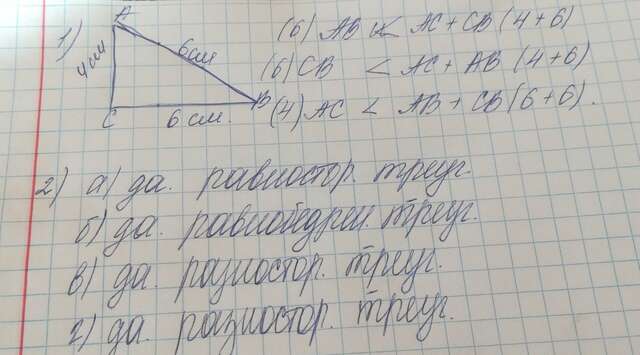 1) A (6) AB < AC + CB (4+6)
4см 6см (6) CB < AC + AB (4+6)
C 6см. B (4) AC < AB + CB (6+6).
2) а) да. равностор. треуг.
б) да. равнобедрен. треуг.
в) да. разностор. треуг.
г) да. разностор. треуг.